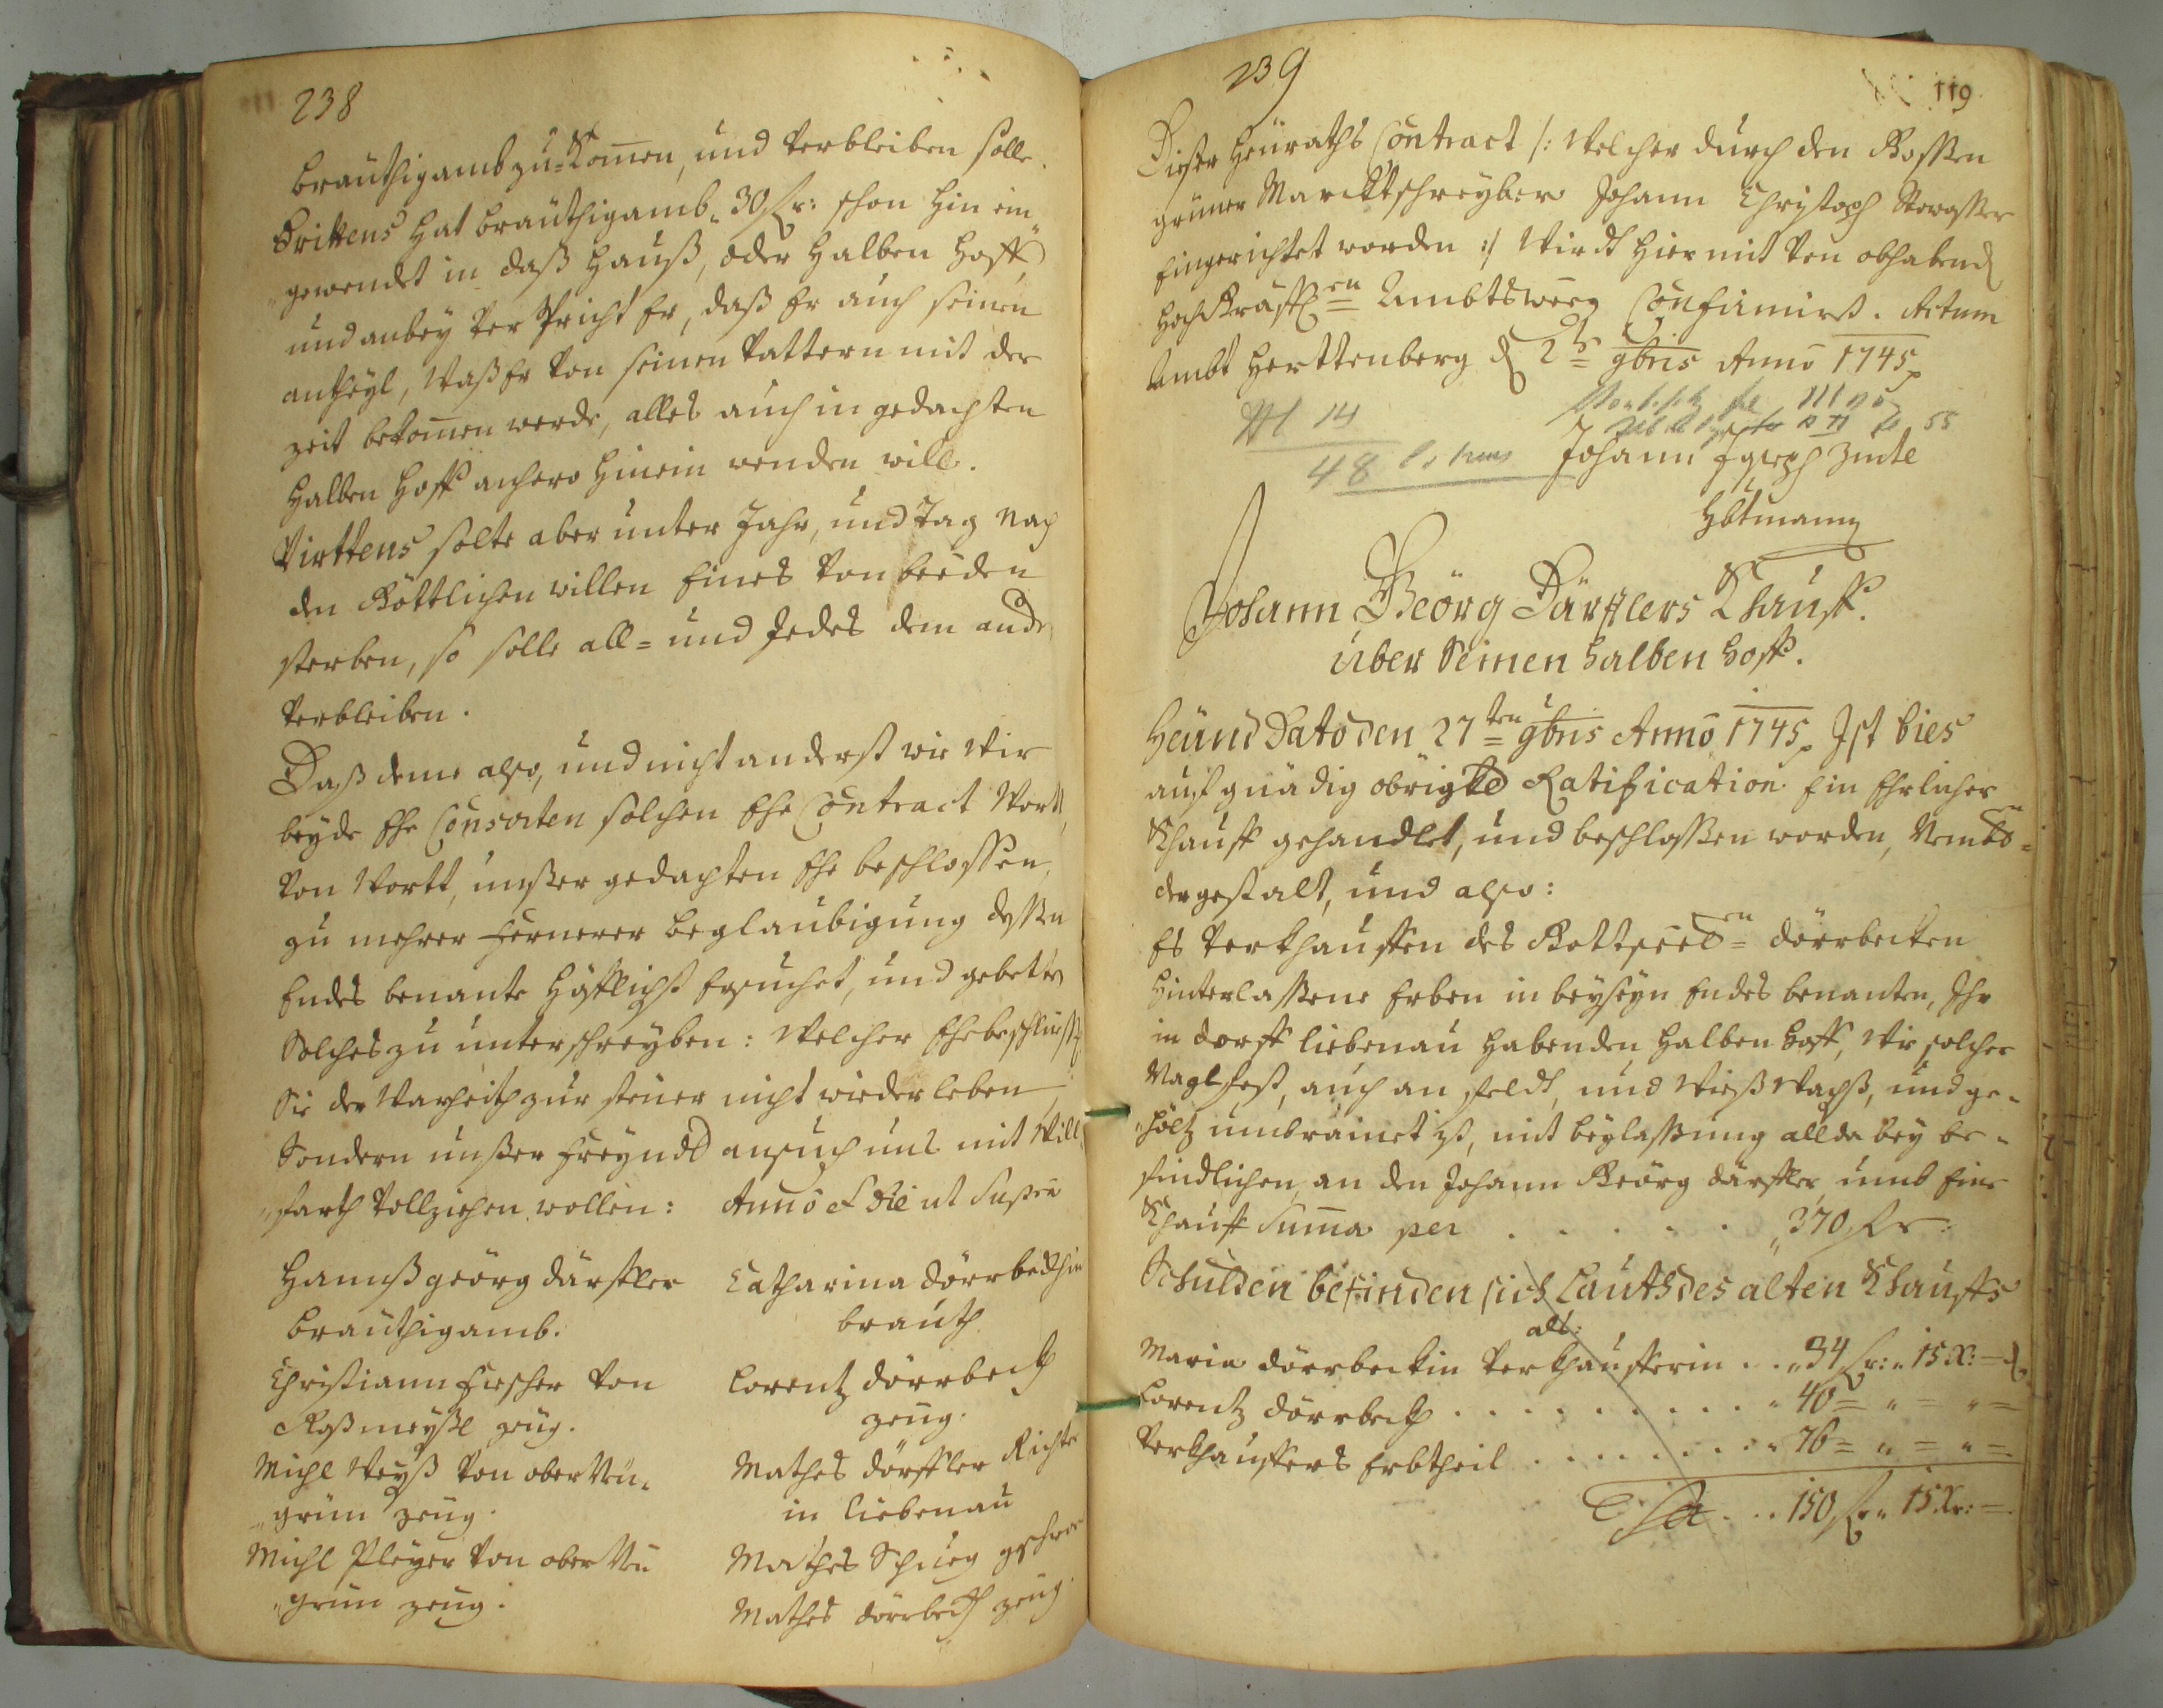 238
bräuthigamb zu-Komen, und verbleiben solle.
Drittens hat bräuthigamb 30 fr: schon hin ein
gewendt in daß Hauß, oder halben Hoff,
und anbey ver Pricht Er, daß Er auch seinen
antheyl, Waß Er von seinen Vattern mit der
zeit bekomen werde, alles auch in gedachten
halben Hoff anhero hinein wenden will.
Virttens solte aber unter Jahr, und Tag nach
den Göttlichen willen Eines von beeden
sterben, so solle all= und Jedes dem andern
verbleiben.
Daß deme also, und nicht anderst wie Wir
beyde Ehe Consorten solchen Ehe Contract Wortt
von Wortt, unßer gedachten Ehe beschlossen,
zu mehrer Fernerer beglaubigung dessen
Endes benante höfflichst Ersuchet, und gebetten
Solches zu unterschreyben: Welcher Ehebeschluß
Sie der Warheith zur steüer nicht wieder leben,
Sondern unßer Freyndt ansuch uns mit Will
farth vollziehen wollen: Anno et Die ut Supra
Hannß georg därffler
bräuthigamb.
Catharina dörrbeckhin
brauth
Christiann Fischer von
Roßmeyßl zeüg.
Lorentz dörrbeckh
zeug.
Michl Weyß von ober Neü
grün zeüg.
Mathes dörffler Richter
in liebenau
Michl Pleyer von ober Neü
grün zeug.
Mathes geschwor
Mathes dörrbeckh zeug.
239
119
Dießer Heüraths Contract /: Welcher durch den Gossen
grüner Marcktschreyber Johann Christoph
Eingerichtet worden :/ Wirdt hier mit von obhabend
hochgräffl en Ambtsweeg Confirmirt. Actum
Ambt Herttenberg d 2t 9bris Anno 1745
14
48
55
Johann Joseph
Hbtmann
Johann Georg Därfflers Khauff.
über Seinen halben Hoff.
Heünd Dato den 27ten 9bris Anno 1745 Ist bies
auf gnädig obrigkd Ratification Ein Ehrlicher
Khauff gehandlet, und beschlossen worden,
dergestalt, und also:
Es verkhauffen des Gottseel en dörrbeckten
Hinterlassene Erben in beyseyn Endes benanten, Ihr
in dorff liebenau habenden halben Hoff, Wie solcher
Naglfest, auch an Feldt, und Wieß Wachß, und ge-
höltz umbrainet ist, mit beylassung allda bey be-
findlichen, an den Johann Georg därffler, umb Eine
Khauff Suma per . . . . . 370 fr:
Schulden befinden sich Lauth des alten Khauffs
alß:
Maria dörrbeckin verkhaufferin . . 34 fr: 15 x: =
Lorentz dörrbeckh . . . . . . . . . . 40 = " = " =
verkhauffers Erbtheil . . . . . . . 76 = " = " =
Sa . . . 150 fr 15 xr: =